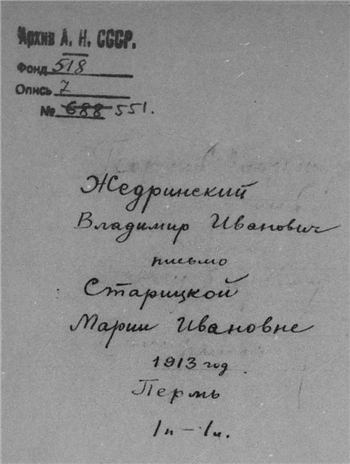 Архив А. Н. СССР.
Фонд 518
Опись 7
№ 688 551.
Жедринский
Владимир Иванович
письмо
Старицкой
Марии Ивановне
1913 год
Пермь
1п-1л.